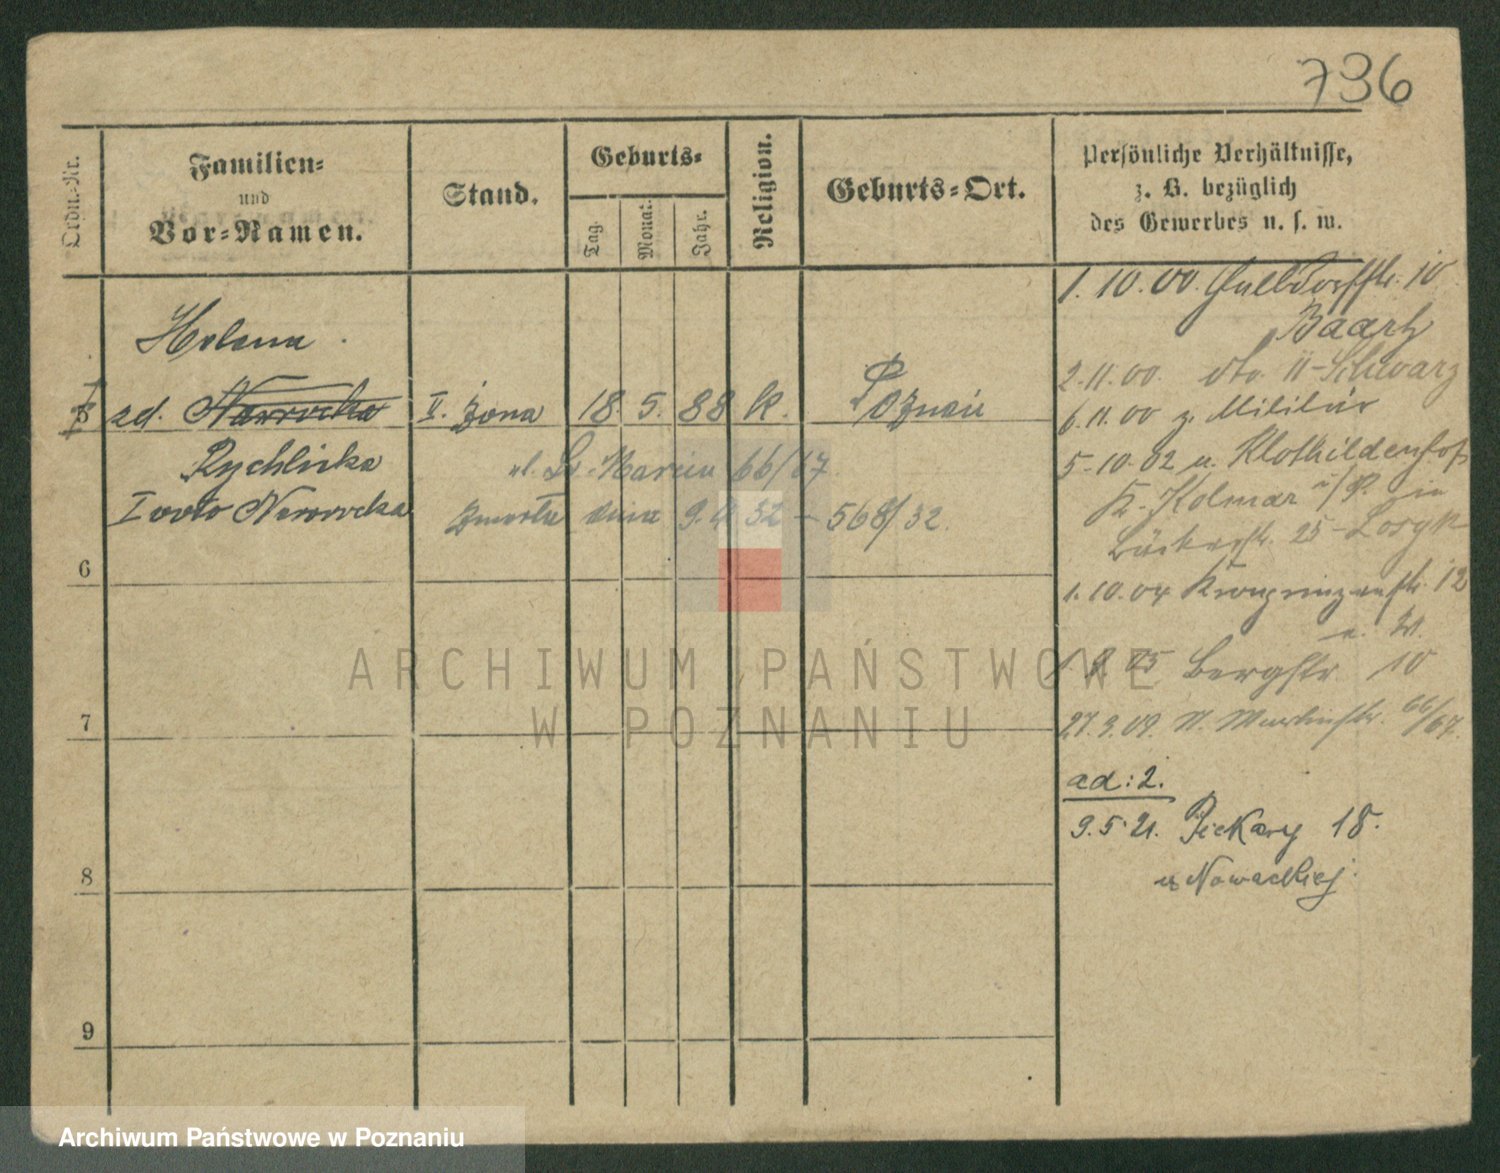 736
Ordn.-Nr.
Familien-
und
Vor-Namen.
Stand.
Geburts-
Tag.
Monat.
Jahr.
Religion.
Geburts-Ort.
Persönliche Verhältnisse,
z. B. bezüglich
des Gewerbes u. s. w.
1. 10. 00. 10
Helena
2. 11. 00. dto II - Schwarz
zd. II. żona 18. 5. 88 k. Poznań
6. 11. 00 z. Militär
Rychlicka
ul. Św. Marcin 66/67
5-10-02 n. Klothildenhof
I voto
zmarła dnia 9. 4 32 - 568/32.
K. Kolmar i/P.
25
6
1. 10. 04 Kronprinzenstr. 12
05 Bergstr 10
7
27. 9. 09. Martinstr. 66/67.
ad: 2.
9. 5. 21. Piekary 18.
8
u Nowackiej.
9
ARCHIWUM PAŃSTWOWE
W POZNANIU
Archiwum Państwowe w Poznaniu